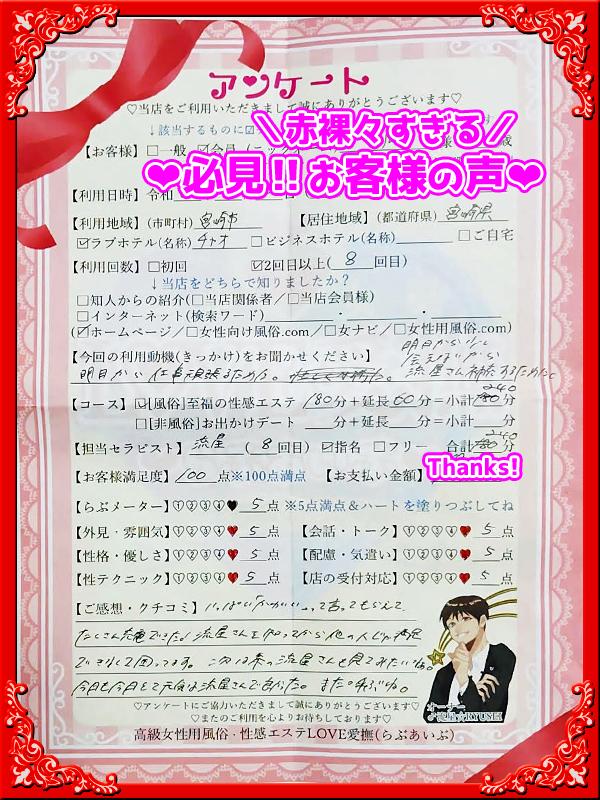 アンケート
♡当店をご利用いただきまして誠にありがとうございます♡
↓該当するものに☑
＼赤裸々すぎる／
【お客様】□一般 ☑会員
❤必見!!お客様の声❤
【利用日時】令和 日
【利用地域】(市町村) 宮崎市 【居住地域】(都道府県) 宮崎県
☑ラブホテル(名称) チャオ □ビジネスホテル(名称) □ご自宅
【利用回数】□初回 ☑2回目以上( 8 回目)
↓当店をどちらで知りましたか？
□知人からの紹介(□当店関係者／□当店会員様)
□インターネット(検索ワード)
(☑ホームページ／□女性向け風俗.com／□女ナビ／□女性用風俗.com)
【今回の利用動機(きっかけ)をお聞かせください】
明日から仕事頑張るため。
明日からしばらく
会えないから
流星さん補給するために
【コース】☑[風俗]至福の性感エステ 180分＋延長 60分＝小計 240分
□[非風俗]お出かけデート 分＋延長 分＝小計 分
【担当セラピスト】 流星 ( 8 回目) ☑指名 □フリー 合計 240分
【お客様満足度】 100 点※100点満点 【お支払い金額】
Thanks!
【らぶメーター】①②③④♥ 5 点 ※5点満点＆ハートを塗りつぶしてね
【外見・雰囲気】①②③④♥ 5 点 【会話・トーク】①②③④♥ 5 点
【性格・優しさ】①②③④♥ 5 点 【配慮・気遣い】①②③④♥ 5 点
【性テクニック】①②③④♥ 5 点 【店の受付対応】①②③④♥ 5 点
【ご感想・クチコミ】 いっぱい「かわいい」って言ってもらえて
たくさん充電できた♪ 流星さんを知ってから他の人じゃ満足
できなくて困ってます。 次は素の流星さんも見てみたいな。
今日も今日とて元気な流星さんであった。また呼ぶね。
♡アンケートにご協力いただきまして誠にありがとうございます♡
♡またのご利用を心よりお待ちしております♡
オーナー
高級女性用風俗・性感エステLOVE愛撫(らぶあいぶ)